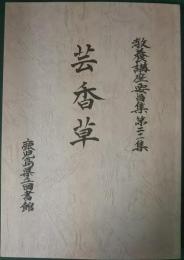 教養講座要旨集第二十二集
芸香草
鹿児島県立図書館